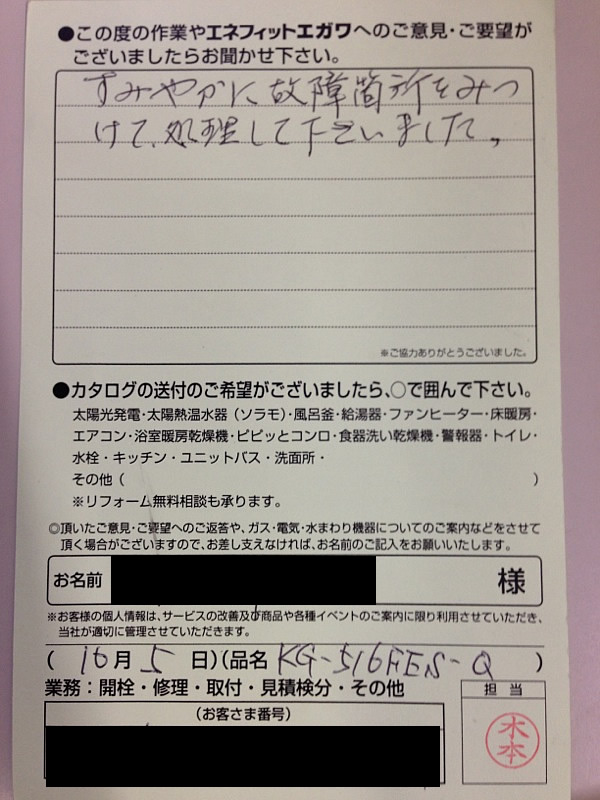 ●この度の作業やエネフィットエガワへのご意見・ご要望が
ございましたらお聞かせ下さい。
すみやかに故障箇所をみつ
けて、処理して下さいました。
※ご協力ありがとうございました。
●カタログの送付のご希望がございましたら、○で囲んで下さい。
太陽光発電・太陽熱温水器（ソラモ）・風呂釜・給湯器・ファンヒーター・床暖房・
エアコン・浴室暖房乾燥機・ピピッとコンロ・食器洗い乾燥機・警報器・トイレ・
水栓・キッチン・ユニットバス・洗面所・
その他（ ）
※リフォーム無料相談も承ります。
◎頂いたご意見・ご要望へのご返答や、ガス・電気・水まわり機器についてのご案内などをさせて
頂く場合がございますので、お差し支えなければ、お名前のご記入をお願いいたします。
お名前 様
※お客様の個人情報は、サービスの改善及び商品や各種イベントのご案内に限り利用させていただき、
当社が適切に管理させていただきます。
（ 10月 5 日）（品名 KG-516FES-Q ）
業務：開栓・修理・取付・見積検分・その他
担当
（お客さま番号）
水本